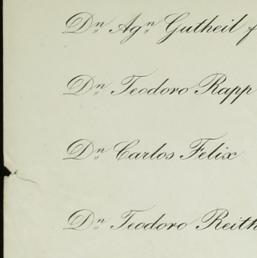 Dn. Agn. Gutheil f
Dn. Teodoro Rapp
Dn. Carlos Felix
Dn. Teodoro Reith